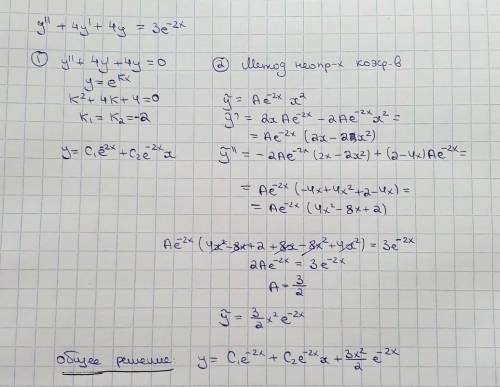 y'' + 4y' + 4y = 3e^{-2x}
① y'' + 4y + 4y = 0
y = e^{kx}
k² + 4k + 4 = 0
k₁ = k₂ = -2
y = C₁e^{-2x} + C₂e^{-2x}x
② Метод неопр-х коэф-в
ỹ = Ae^{-2x} x²
ỹ' = 2xAe^{-2x} - 2Ae^{-2x}x² =
= Ae^{-2x} (2x - 2x²)
ỹ'' = -2Ae^{-2x} (2x - 2x²) + (2 - 4x)Ae^{-2x} =
= Ae^{-2x} (-4x + 4x² + 2 - 4x) =
= Ae^{-2x} (4x² - 8x + 2)
Ae^{-2x} (4x² - 8x + 2 + 8x - 8x² + 4x²) = 3e^{-2x}
2Ae^{-2x} = 3e^{-2x}
A = 3/2
ỹ = 3/2 x² e^{-2x}
Общее решение: y = C₁e^{-2x} + C₂e^{-2x}x + 3x²/2 e^{-2x}